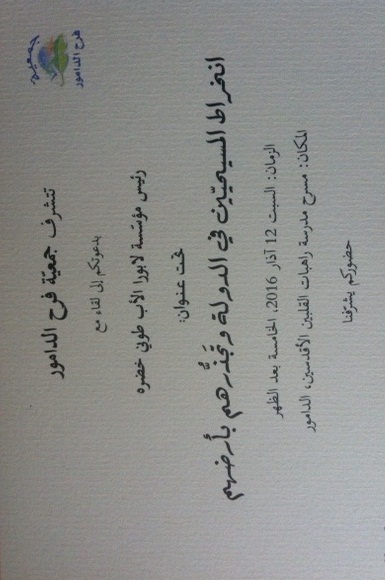 جمعية
فرح الدامور
تتشرف جمعيّة فرح الدامور
بدعوتكم إلى لقاء مع
رئيس مؤسّسة لابورا الأب طوني خضره
تحت عنوان:
انخراط المسيحيّين في الدولة وتجذّرهم بأرضهم
الزمان: السبت 12 آذار 2016، الخامسة بعد الظهر
المكان: مسرح مدرسة راهبات القلبين الأقدسين، الدامور
حضوركم يشرّفنا